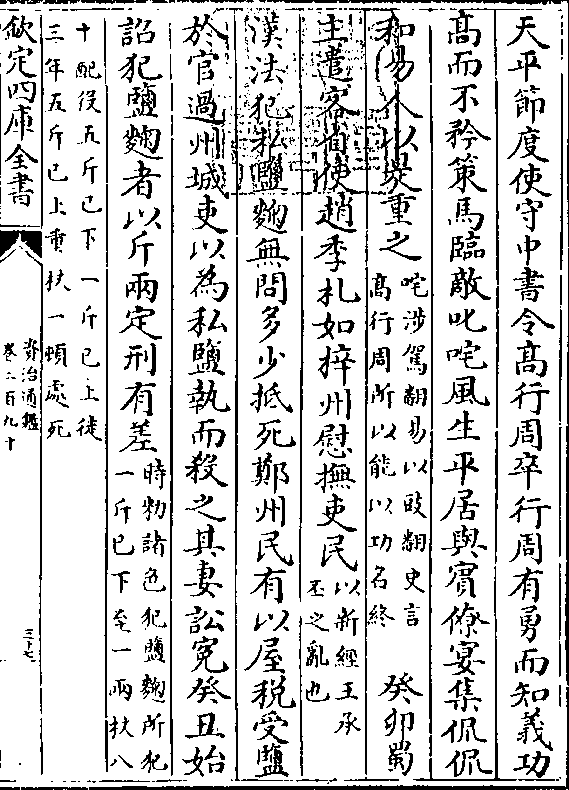 天平節度使守中書令髙行周卒行周有勇而知義功
髙而不矜策馬臨敵叱咤風生平居與賓僚宴集侃侃
和易人以是重之咤涉駕翻易以豉翻史言髙行周所以能以功名終癸卯蜀
主遣客省使趙季札如梓州慰撫吏民以新經王承丕之亂也
漢法犯私鹽麴無問多少抵死鄭州民有以屋税受鹽
於官過州城吏以為私鹽執而殺之其妻訟寃癸丑始
詔犯鹽麴者以斤兩定刑有差時勅諸色犯鹽麴所犯一斤已下至一兩杖八
十配役五斤已下一斤已上徒三年五斤已上重杖一頓處死
欽定四庫全書
資治通鑑
卷二百九十
三十七